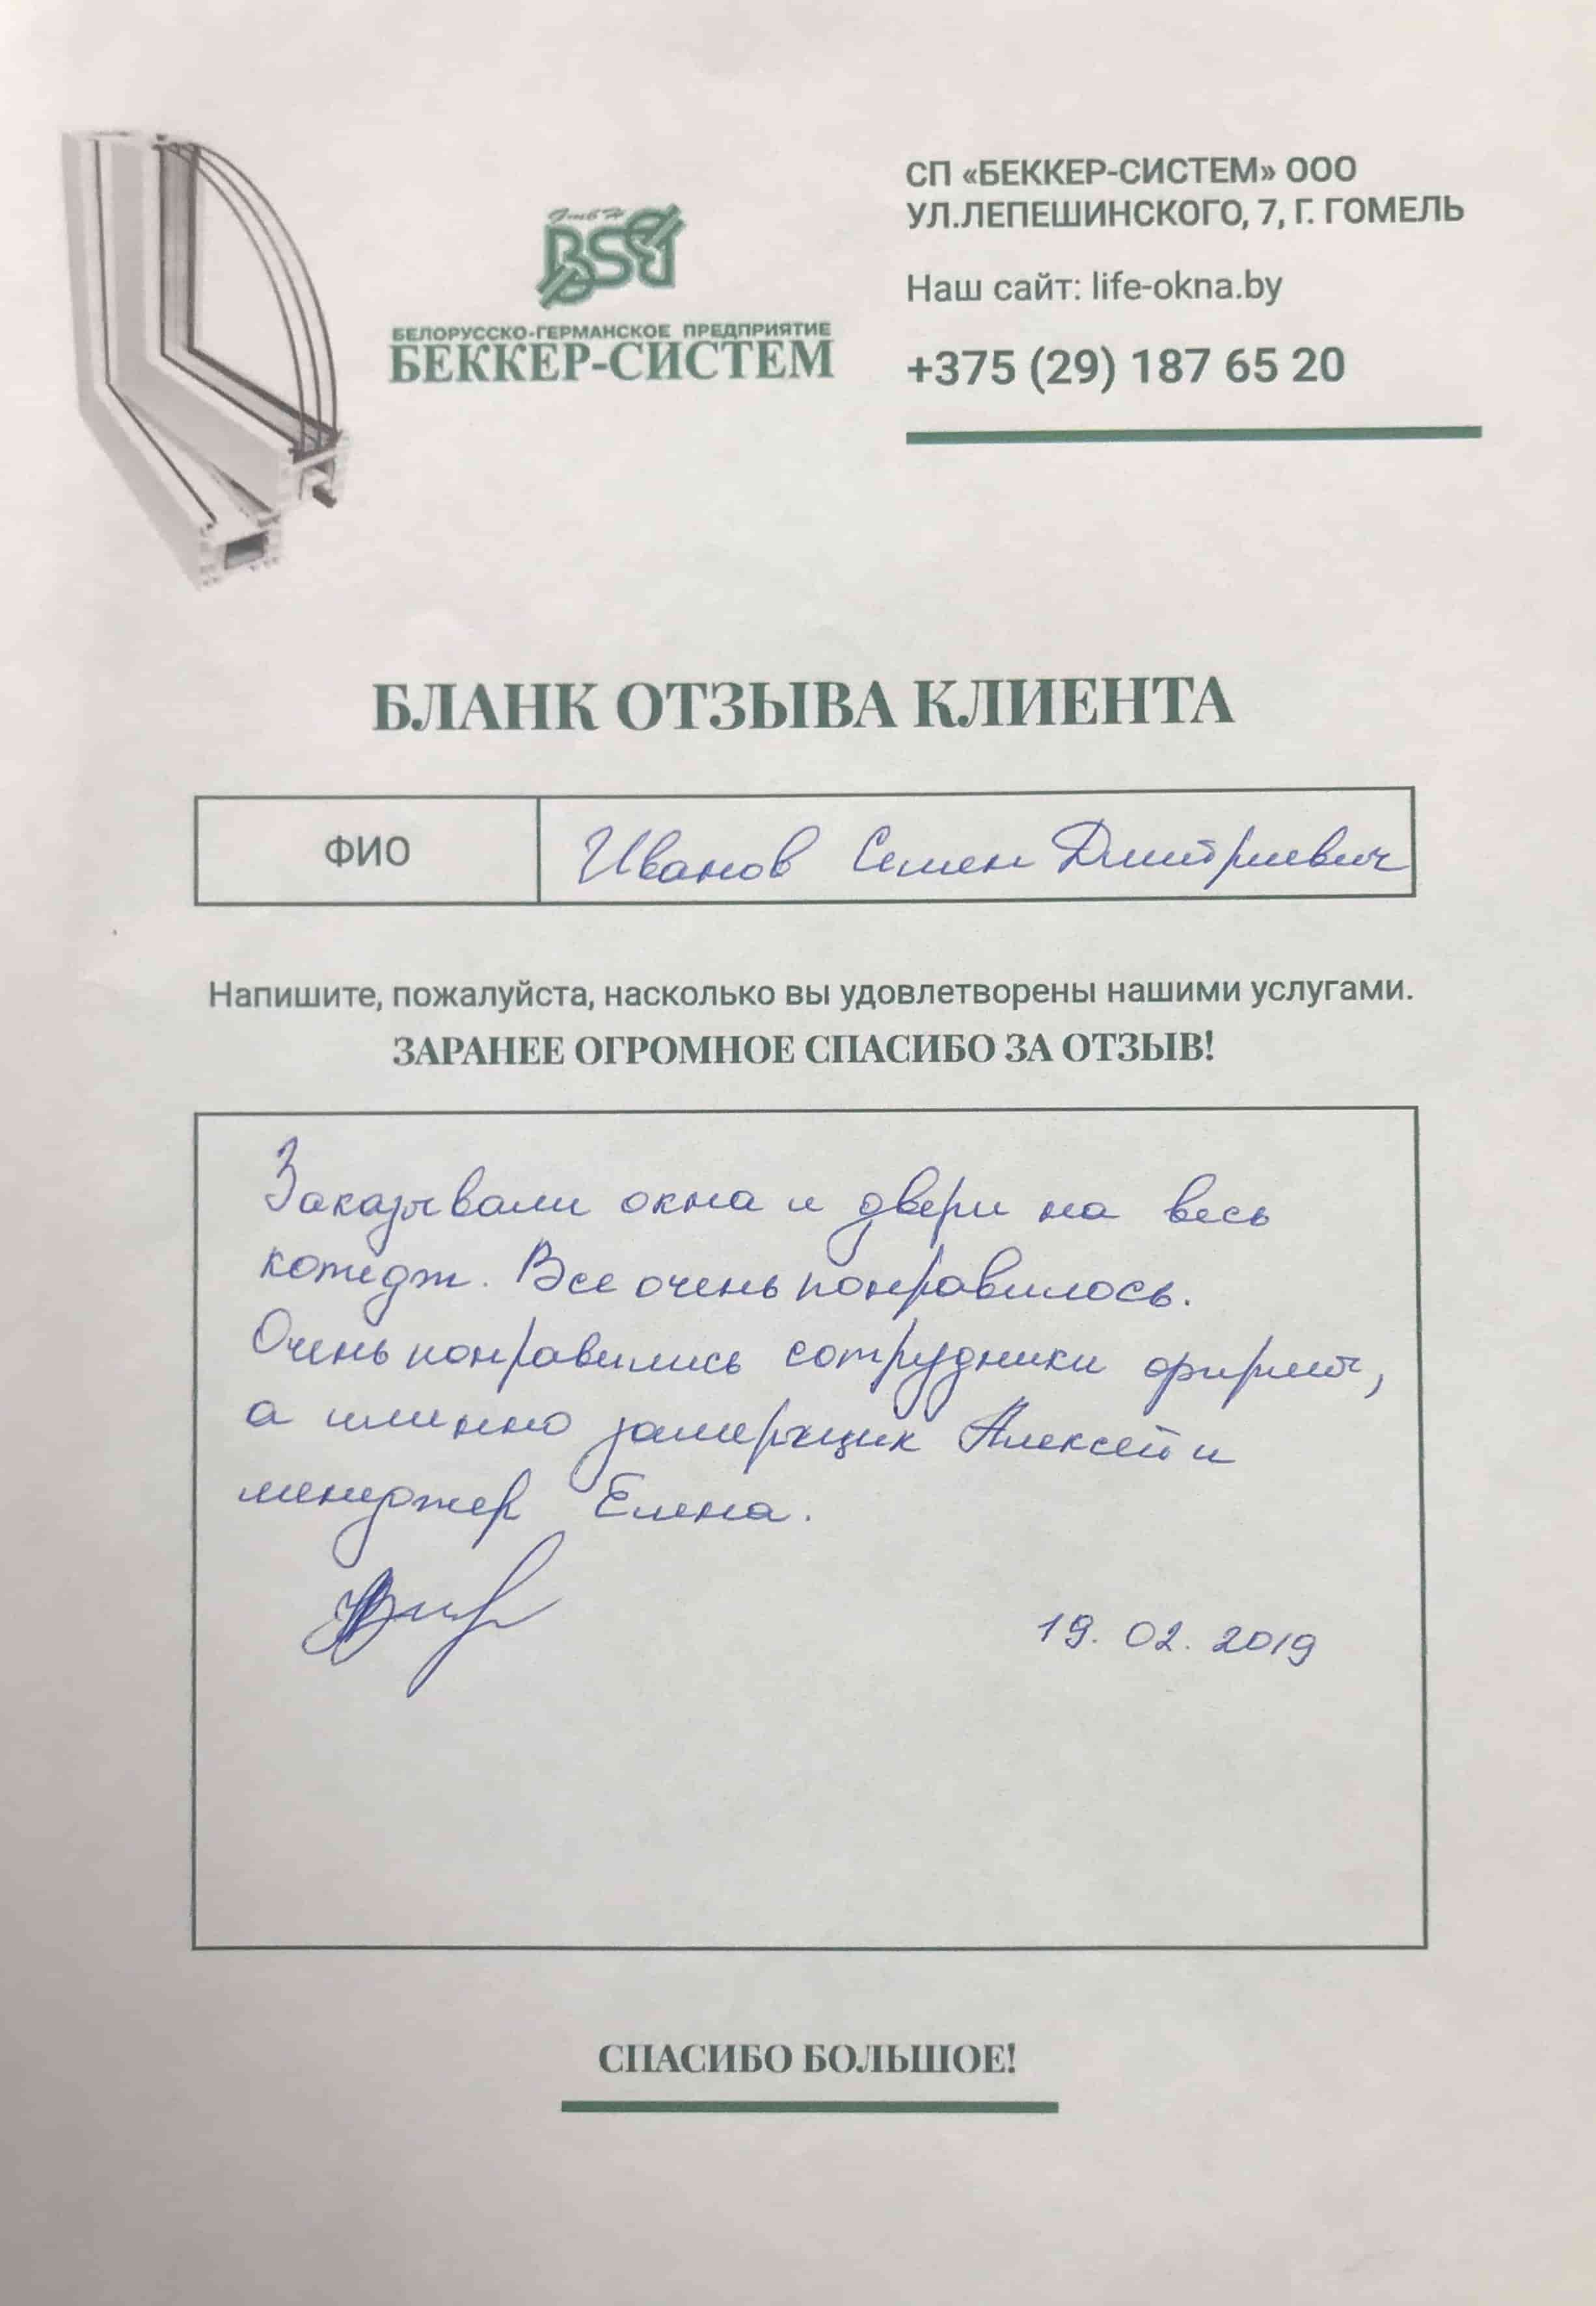 GmbH
BSB
БЕЛОРУССКО-ГЕРМАНСКОЕ ПРЕДПРИЯТИЕ
БЕККЕР-СИСТЕМ
СП «БЕККЕР-СИСТЕМ» ООО
УЛ.ЛЕПЕШИНСКОГО, 7, Г. ГОМЕЛЬ
Наш сайт: life-okna.by
+375 (29) 187 65 20
БЛАНК ОТЗЫВА КЛИЕНТА
ФИО
Иванов Семен Дмитриевич
Напишите, пожалуйста, насколько вы удовлетворены нашими услугами.
ЗАРАНЕЕ ОГРОМНОЕ СПАСИБО ЗА ОТЗЫВ!
Заказывали окна и двери на весь
котедж. Все очень понравилось.
Очень понравились сотрудники фирмы,
а именно замерщик Алексей и
менеджер Елена.
19. 02. 2019
СПАСИБО БОЛЬШОЕ!